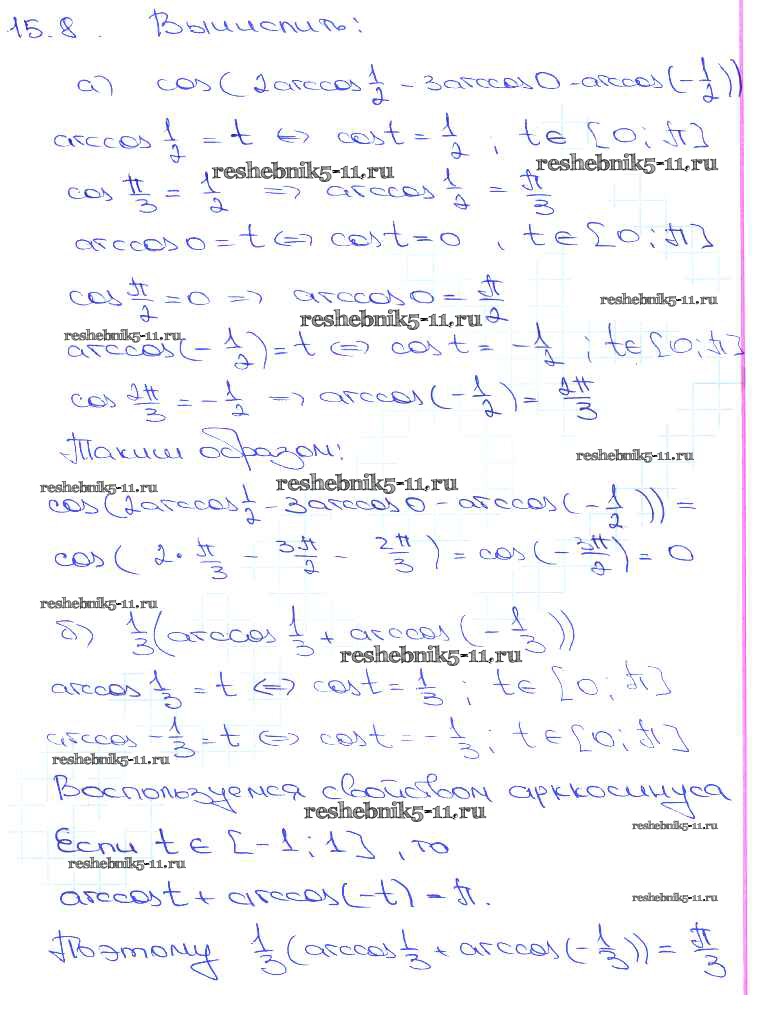 15.8. Вычислить:
а) cos(2arccos 1/2 - 3arccos0 - arccos(-1/2))
arccos 1/2 = t ⇔ cost = 1/2 ; t∈[0;π]
reshebnik5-11.ru reshebnik5-11.ru
cos π/3 = 1/2 => arccos 1/2 = π/3
arccos0 = t ⇔ cost = 0 , t∈[0;π]
cos π/2 = 0 => arccos0 = π/2 reshebnik5-11.ru
reshebnik5-11.ru
reshebnik5-11.ru
arccos(-1/2) = t ⇔ cost = -1/2 ; t∈[0;π]
cos 2π/3 = -1/2 => arccos(-1/2) = 2π/3
Таким образом: reshebnik5-11.ru
reshebnik5-11.ru reshebnik5-11.ru
cos(2arccos 1/2 - 3arccos0 - arccos(-1/2)) =
cos(2·π/3 - 3π/2 - 2π/3) = cos(-3π/2) = 0
reshebnik5-11.ru
б) 1/3(arccos 1/3 + arccos(-1/3))
reshebnik5-11.ru
arccos 1/3 = t ⇔ cost = 1/3 ; t∈[0;π]
arccos -1/3 = t ⇔ cost = -1/3 ; t∈[0;π]
reshebnik5-11.ru
Воспользуемся свойством арккосинуса
reshebnik5-11.ru reshebnik5-11.ru
Если t∈[-1;1] , то
reshebnik5-11.ru
arccost + arccos(-t) = π. reshebnik5-11.ru
Поэтому 1/3(arccos 1/3 + arccos(-1/3)) = π/3